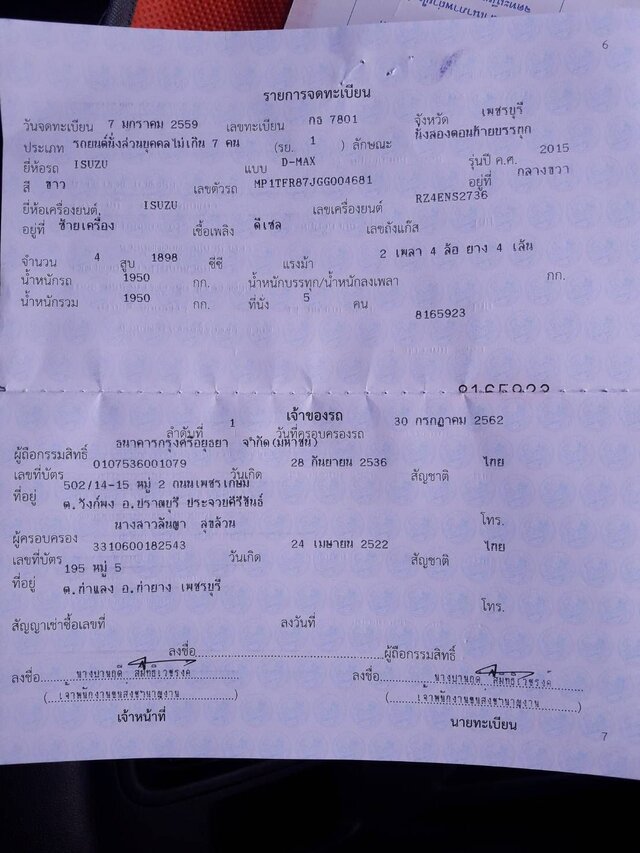 6
รายการจดทะเบียน
วันจดทะเบียน 7 มกราคม 2559 เลขทะเบียน กธ 7801 จังหวัด เพชรบุรี
ประเภท รถยนต์นั่งส่วนบุคคลไม่เกิน 7 คน (รย. 1 ) ลักษณะ นั่งสองตอนท้ายบรรทุก
ยี่ห้อรถ ISUZU แบบ D-MAX รุ่นปี ค.ศ. 2015
สี ขาว เลขตัวรถ MP1TFR87JGG004681 อยู่ที่ กลางขวา
ยี่ห้อเครื่องยนต์ ISUZU เลขเครื่องยนต์ RZ4ENS2736
อยู่ที่ ซ้ายเครื่อง เชื้อเพลิง ดีเซล เลขถังแก๊ส
จำนวน 4 สูบ 1898 ซีซี แรงม้า 2 เพลา 4 ล้อ ยาง 4 เส้น
น้ำหนักรถ 1950 กก. น้ำหนักบรรทุก/น้ำหนักลงเพลา กก.
น้ำหนักรวม 1950 กก. ที่นั่ง 5 คน
8165923
8165923
เจ้าของรถ
ลำดับที่ 1 วันที่ครอบครองรถ 30 กรกฎาคม 2562
ผู้ถือกรรมสิทธิ์ ธนาคารกรุงศรีอยุธยา จำกัด(มหาชน)
เลขที่บัตร 0107536001079 วันเกิด 28 กันยายน 2536 สัญชาติ ไทย
ที่อยู่ 502/14-15 หมู่ 2 ถนนเพชรเกษม
ต.วังก์พง อ.ปราณบุรี ประจวบคีรีขันธ์
โทร.
ผู้ครอบครอง นางสาวลัน
เลขที่บัตร 3310600182543 วันเกิด 24 เมษายน 2522 สัญชาติ ไทย
ที่อยู่ 195 หมู่ 5
ต.ท่าแลง อ.ท่ายาง เพชรบุรี
โทร.
สัญญาเช่าซื้อเลขที่ ลงวันที่
ลงชื่อ ผู้ถือกรรมสิทธิ์
ลงชื่อ ลงชื่อ
(เจ้าพนักงานขนส่งชำนาญงาน) (เจ้าพนักงานขนส่งชำนาญงาน)
เจ้าหน้าที่ นายทะเบียน
7